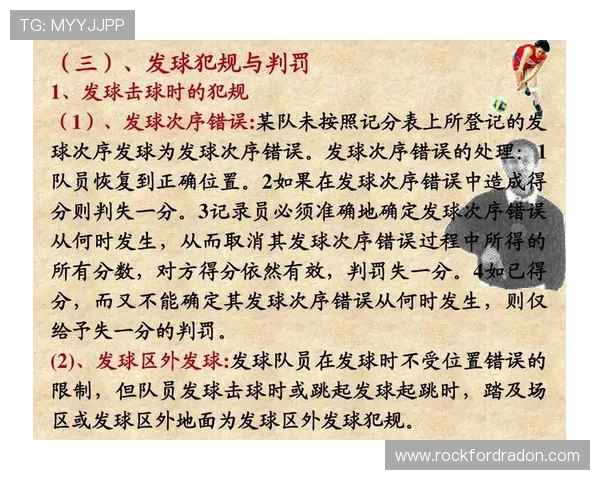 TG: MYYJJPP
（三）、发球犯规与判罚
1、发球击球时的犯规
（1）、发球次序错误:某队未按照记分表上所登记的发
球次序发球为发球次序错误。发球次序错误的处理：1
队员恢复到正确位置。2如果在发球次序错误中造成得
分则判失一分。3记录员必须准确地确定发球次序错误
从何时发生，从而取消其发球次序错误过程中所得的
所有分数，对方得分依然有效，判罚失一分。4如已得
分，而又不能确定其发球次序错误从何时发生，则仅
给予失一分的判罚。
(2)、发球区外发球:发球队员在发球时不受位置错误的
限制，但队员发球击球时或跳起发球起跳时，踏及场
区或发球区外地面为发球区外发球犯规。
www.rockfordradon.com